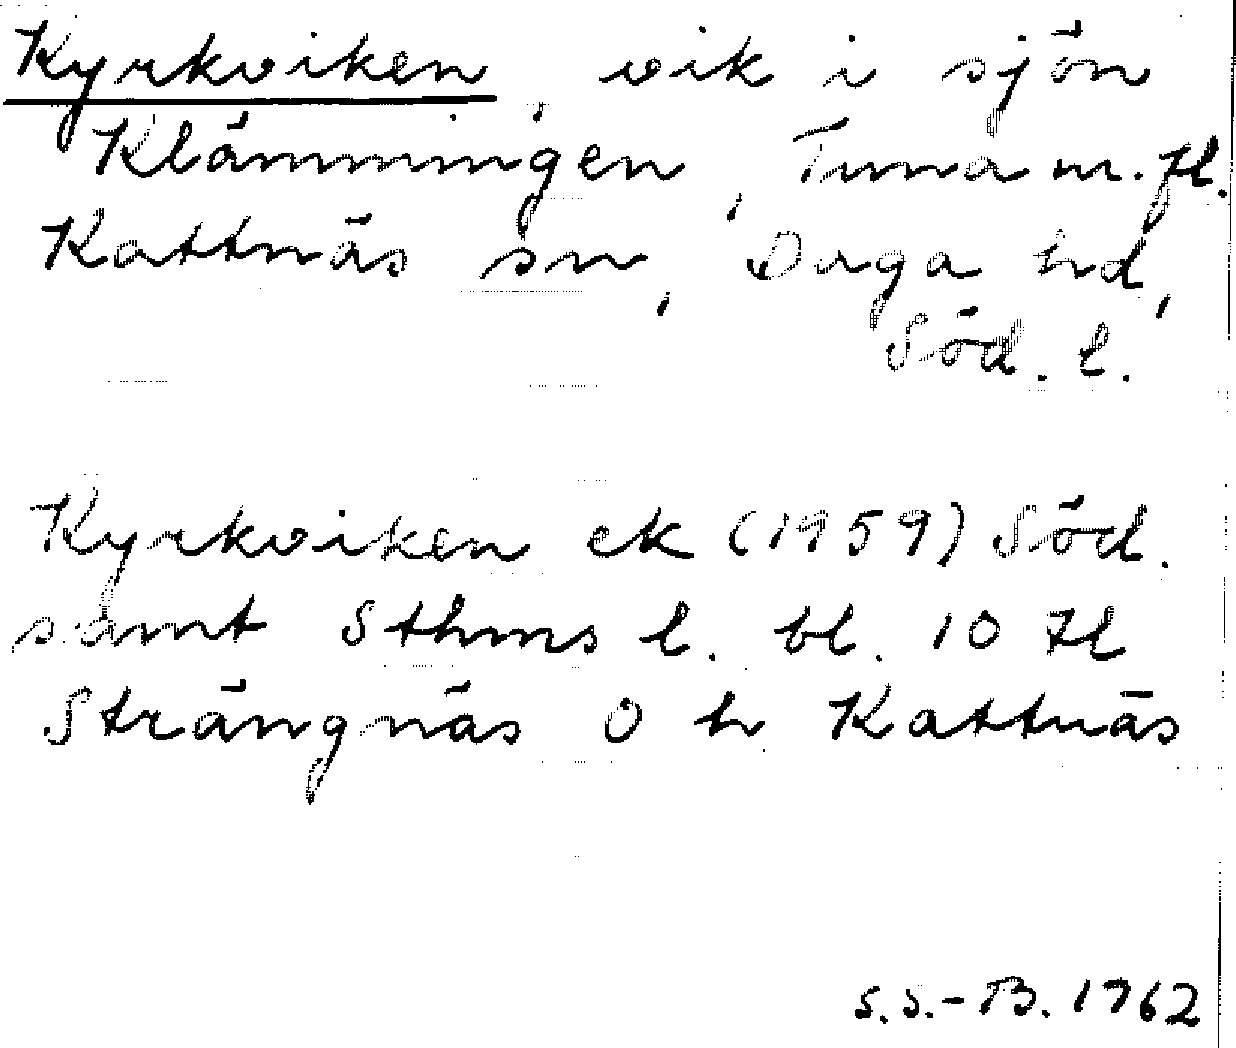 Kyrkviken, vik i sjön
Klämmingen, Tuna m. fl.
Kattnäs sn, Daga hd,
Söd. l.
Kyrkviken ek (1959) Söd.
samt Sthms l. bl. 10 fl
Strängnäs O h Kattnäs
S.S.-B. 1962